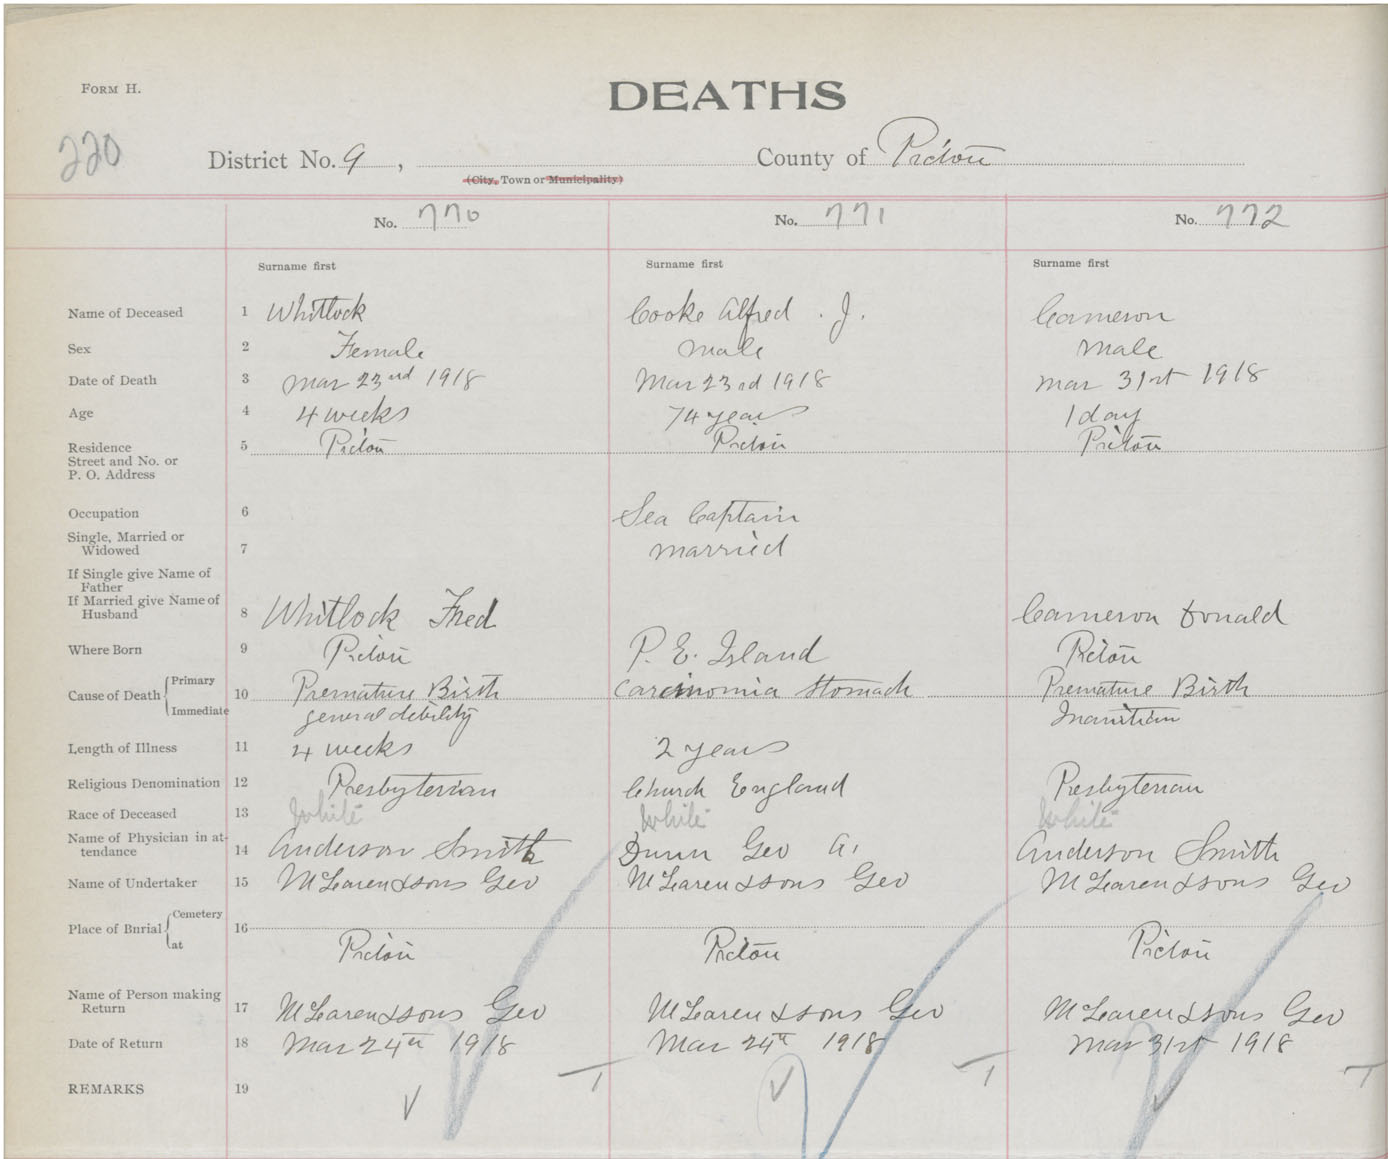 FORM H.
DEATHS
220
District No. 9, County of Pictou
(City, Town or Municipality)
No. 770 No. 771 No. 772
Surname first Surname first Surname first
Name of Deceased 1 Whitlock Cooke Alfred . J. Cameron
Sex 2 Female Male Male
Date of Death 3 Mar 23rd 1918 Mar 23rd 1918 Mar 31st 1918
Age 4 4 weeks 74 years 1 day
Residence 5 Pictou Pictou Pictou
Street and No. or
P. O. Address
Occupation 6 Sea Captain
Single, Married or
Widowed 7 Married
If Single give Name of
Father
If Married give Name of
Husband 8 Whitlock Fred Cameron Donald
Where Born 9 Pictou P. E. Island Pictou
Cause of Death { Primary 10 Premature Birth Carcinomia Stomach Premature Birth
Immediate general debility Inanition
Length of Illness 11 4 weeks 2 years
Religious Denomination 12 Presbyterian Church England Presbyterian
Race of Deceased 13 White White White
Name of Physician in at-
tendance 14 Anderson Smith Dunn Geo A. Anderson Smith
Name of Undertaker 15 McLaren & sons Geo McLaren & sons Geo McLaren & sons Geo
Place of Burial { Cemetery 16
at Pictou Pictou Pictou
Name of Person making
Return 17 McLaren & sons Geo McLaren & sons Geo McLaren & sons Geo
Date of Return 18 Mar 24th 1918 Mar 24th 1918 Mar 31st 1918
REMARKS 19